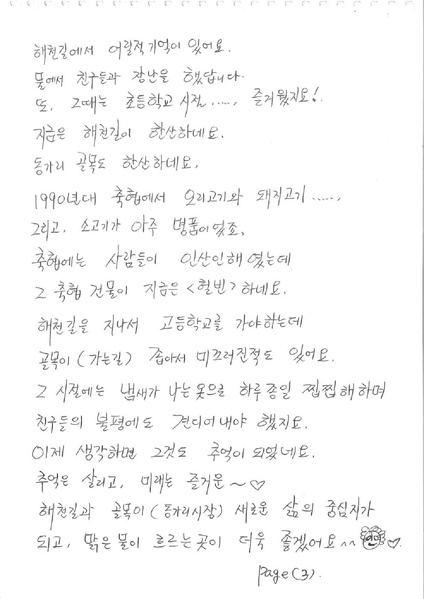 해천길에서 어릴적기억이 있어요.
물에서 친구들과 장난을 했답니다.
또, 그때는 초등학교 시절....., 즐거웠지요!
지금은 해천길이 한산하네요.
동가리 골목도 한산하네요.
1990년대 축협에서 오리고기와 돼지고기.....,
그리고, 소고기가 아주 명품이었죠.
축협에는 사람들이 인산인해였는데
그 축협 건물이 지금은 <헐빈>하네요.
해천길을 지나서 고등학교를 가야하는데
골목이 (가는길) 좁아서 미끄러진적도 있어요.
그 시절에는 냄새가 나는 옷으로 하루종일 찝찝해하며
친구들의 불평에도 견디어내야 했지요.
이제 생각하면 그것도 추억이 되었네요.
추억은 살리고, 미래는 즐거운~♡
해천길과 골목이 (동가리시장) 새로운 삶의 중심지가
되고, 맑은물이 흐르는곳이 더욱 좋겠어요^^ ♡
page(3).